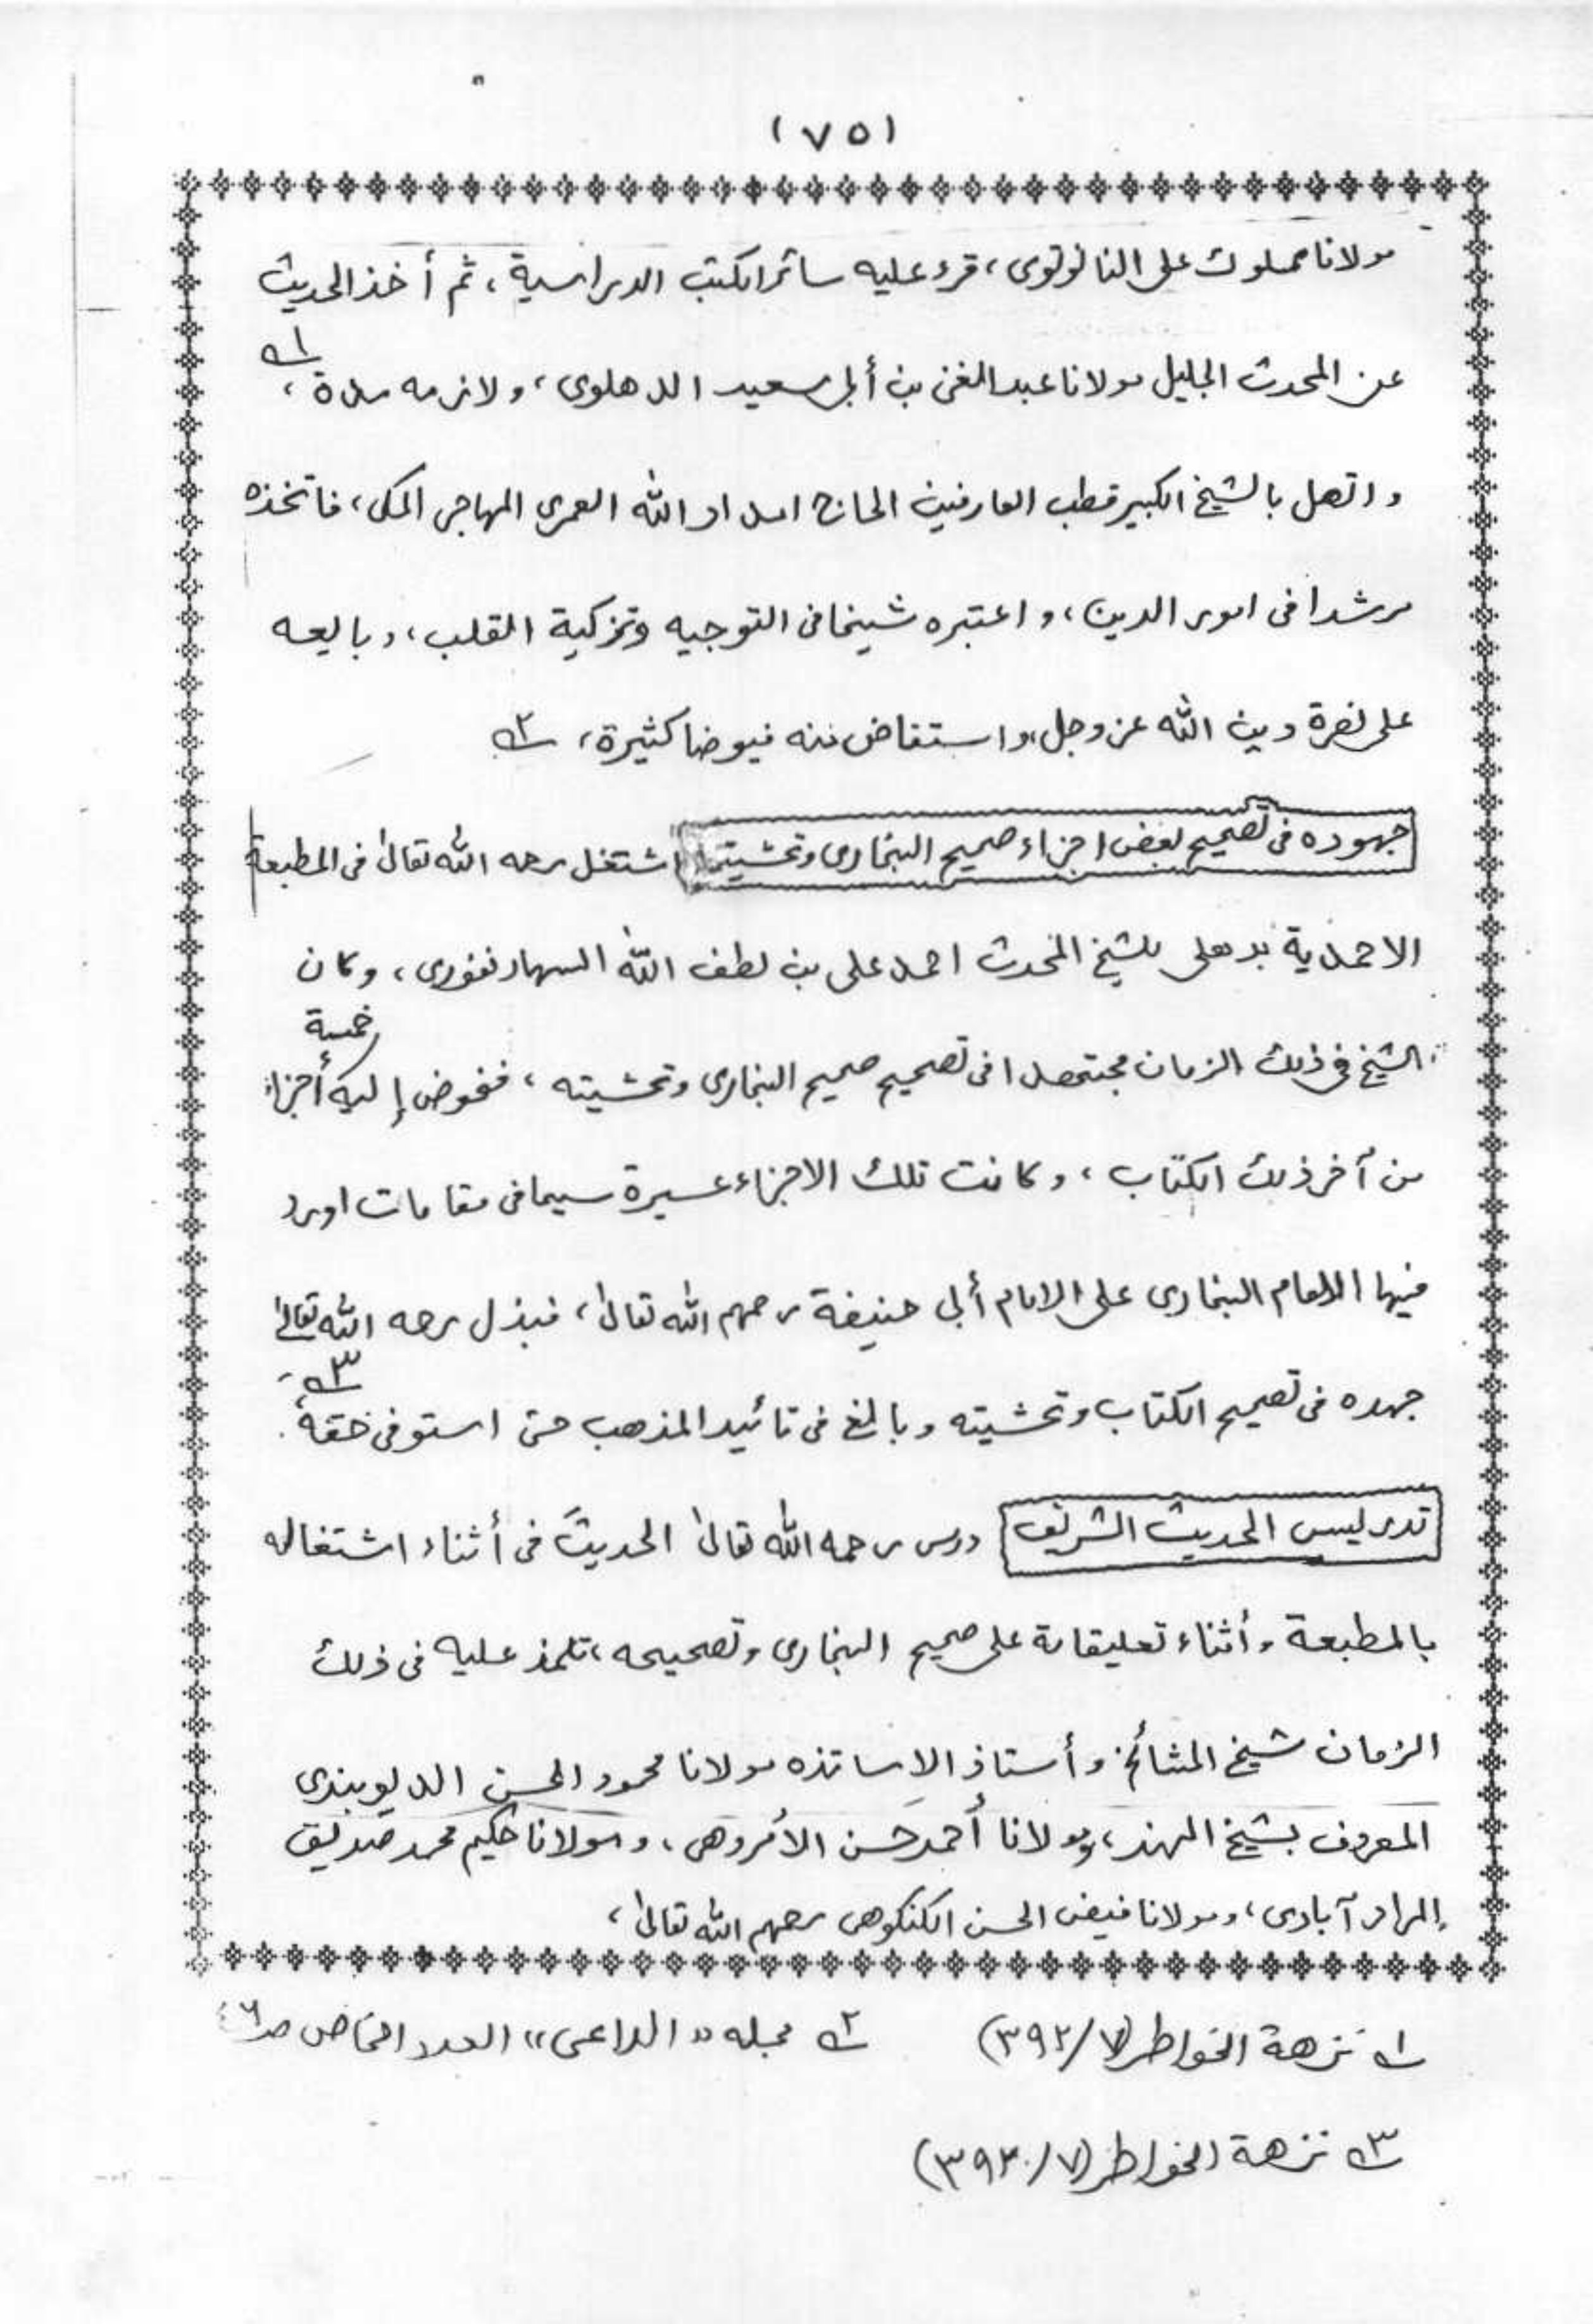 (٧٥)
مولانا مملوك على النانوتوى، قرء عليه سائر الكتب الدراسية، ثم أخذ الحديث
عن المحدث الجليل مولانا عبد الغنى بن أبى سعيد الدهلوى، ولازمه مدة، ١
واتصل بالشيخ الكبير قطب العارفين الحاج امداد الله العمرى المهاجر المكى، فاتخذه
مرشدا فى امور الدين، واعتبره شيخا فى التوجيه وتزكية القلب، وبايعه
على نصرة دين الله عز وجل، واستفاض منه فيوضا كثيرة، ٢
جهوده فى تصحيح بعض اجزاء صحيح البخارى وتحشيتها اشتغل رحمه الله تعالىٰ فى المطبعة
الاحمدية بدهلى للشيخ المحدث احمد على بن لطف الله السهارنفورى، وكان
الشيخ فى ذلك الزمان مجتهدا فى تصحيح صحيح البخارى وتحشيته، ففوض إليه خمسة أجزاء
من آخر ذلك الكتاب، وكانت تلك الاجزاء عسيرة سيما فى مقامات اورد
فيها الامام البخارى على الامام أبى حنيفة رحمهم الله تعالىٰ، فبذل رحمه الله تعالىٰ
جهده فى تصحيح الكتاب وتحشيته وبالغ فى تائيد المذهب حتى استوفى حقه، ٣
تدريس الحديث الشريف درس رحمه الله تعالىٰ الحديث فى أثناء اشتغاله
بالمطبعة وأثناء تعليقاته على صحيح البخارى وتصحيحه، تلمذ عليه فى ذلك
الزمان شيخ المشائخ وأستاذ الاساتذه مولانا محمود الحسن الديوبندى
المعروف بشيخ الهند، ومولانا أحمد حسن الأمروهى، ومولانا حكيم محمد صديق
المراد آبادى، ومولانا فيض الحسن الكنكوهى رحمهم الله تعالىٰ،
١ نزهة الخواطر (٧/٣٩٢) ٢ مجله "الداعى" العدد الخاص
٣ نزهة الخواطر (٧/٣٩٢)